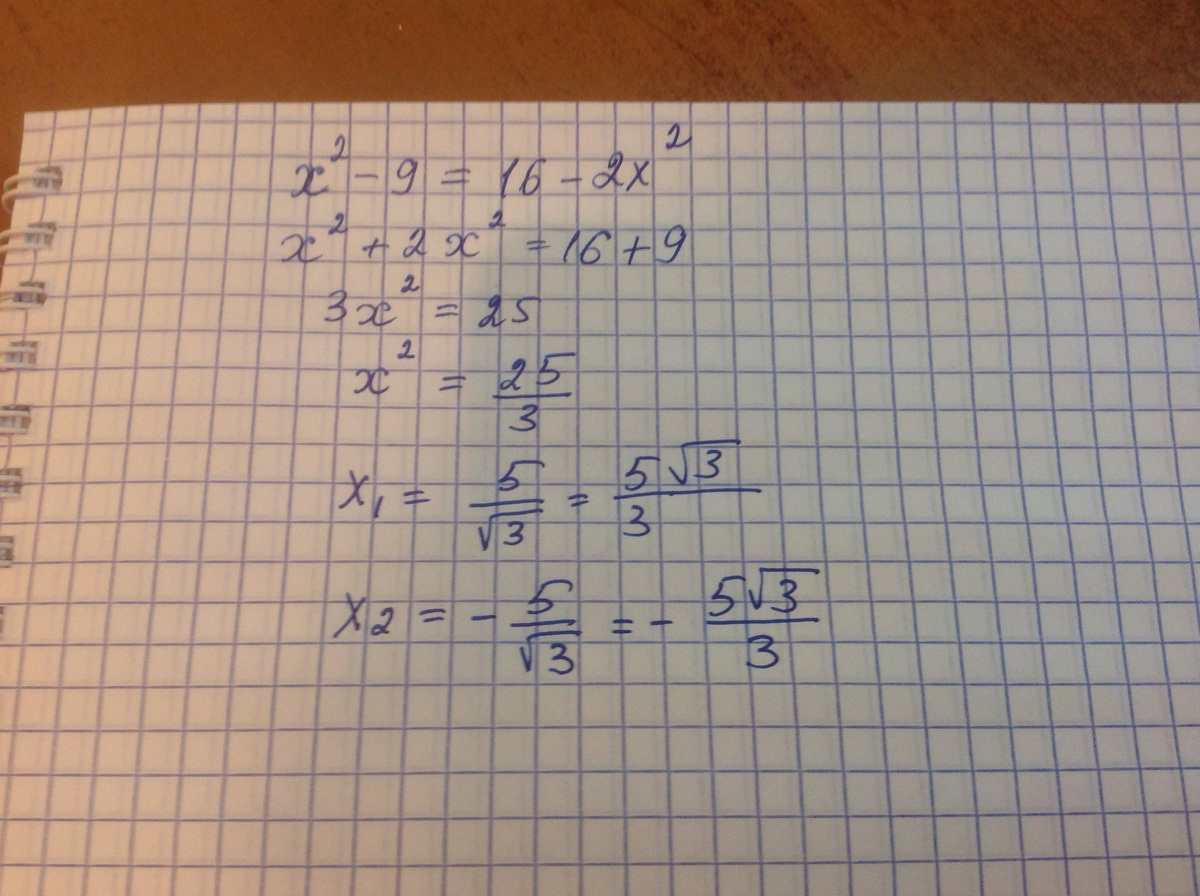 x² - 9 = 16 - 2x²
x² + 2x² = 16 + 9
3x² = 25
x² = 25/3
x₁ = 5/√3 = 5√3/3
x₂ = - 5/√3 = - 5√3/3